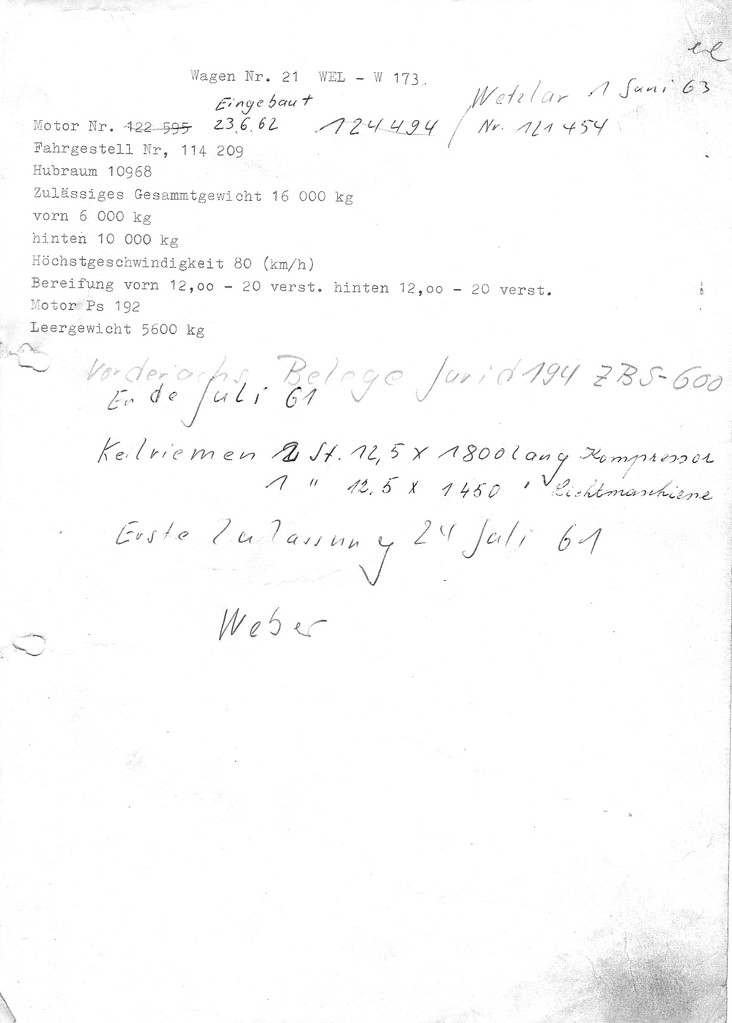 Wagen Nr. 21 WEL - W 173.
Eingebaut Wetzlar 1 Juni 63
Motor Nr. 122 595 23.6.62 124494 / Nr. 121454
Fahrgestell Nr, 114 209
Hubraum 10968
Zulässiges Gesammtgewicht 16 000 kg
vorn 6 000 kg
hinten 10 000 kg
Höchstgeschwindigkeit 80 (km/h)
Bereifung vorn 12,oo - 20 verst. hinten 12,oo - 20 verst.
Motor Ps 192
Leergewicht 5600 kg
Vorderachs Belege Jurid 194 ZBS-600
Ende Juli 61
Keilriemen 2 St. 12,5 X 1800 lang Kompressor
1 " 12,5 X 1450 " Lichtmaschiene
Erste Zulassung 24 Juli 61
Weber